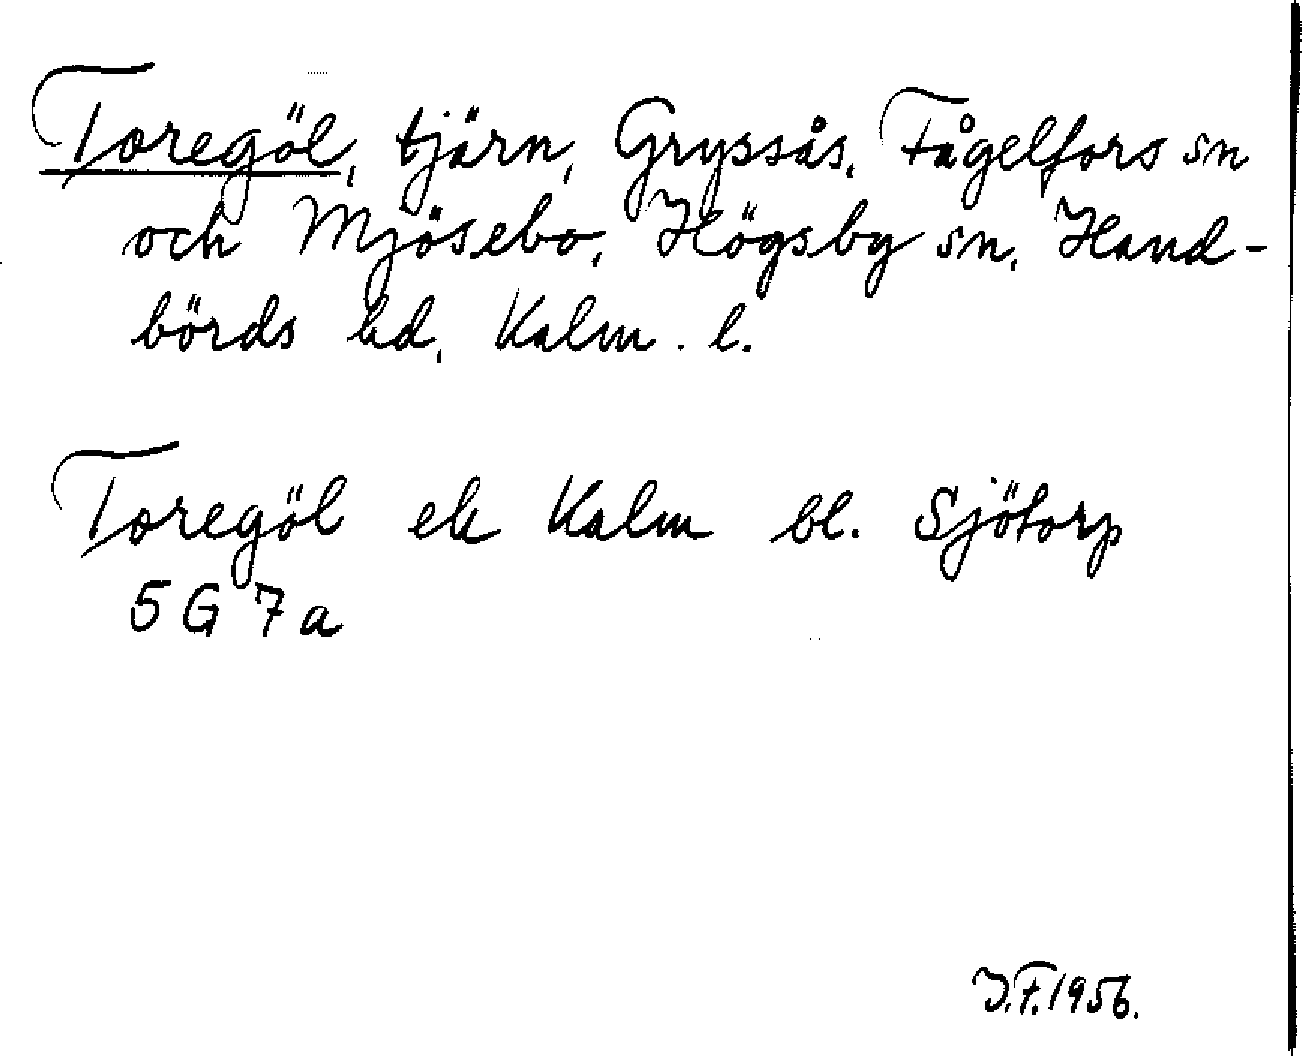 Toregöl, tjärn, Gryssås, Fågelfors sn
och Mjösebo, Högsby sn, Hand-
börds hd, Kalm. l.
Toregöl ek Kalm bl. Sjötorp
5 G 7 a
J.F. 1956.